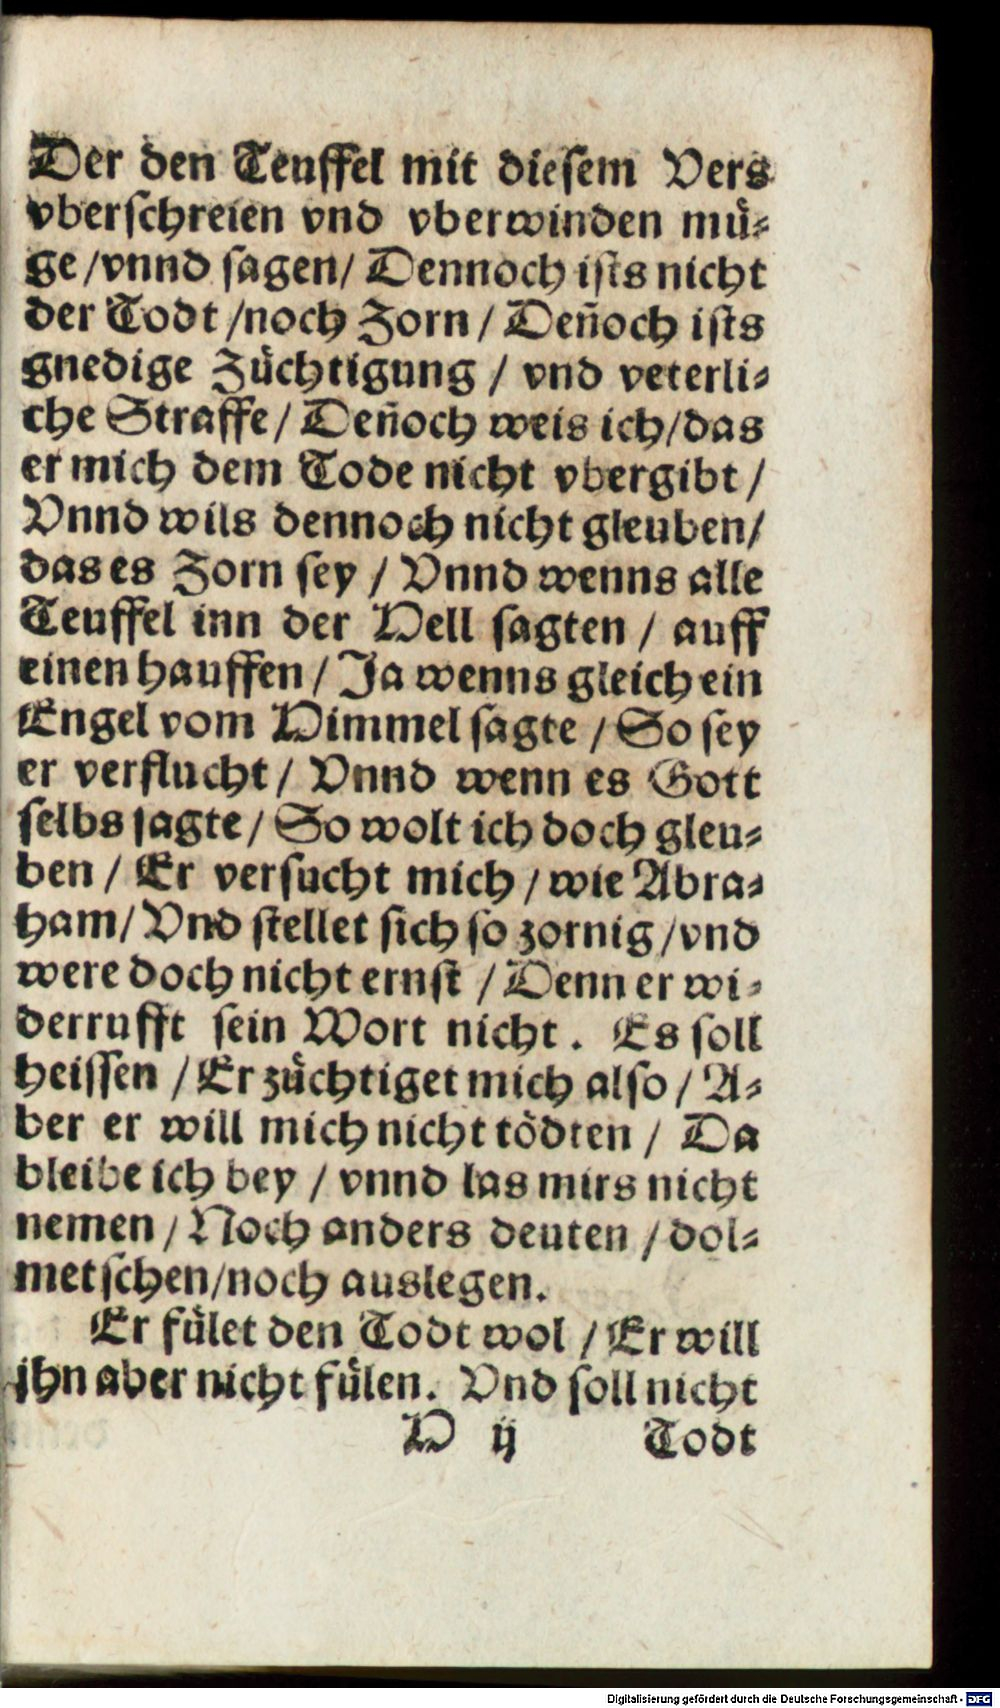 Der den Teuffel mit diesem Vers
vberschreien vnd vberwinden mü⸗
ge /vnnd sagen/ Dennoch ists nicht
der Todt /noch Zorn / Deñoch ists
gnedige Züchtigung / vnd veterli⸗
che Straffe / Deñoch weis ich/das
er mich dem Tode nicht vbergibt /
Vnnd wils dennoch nicht gleuben/
das es Zorn sey / Vnnd wenns alle
Teuffel inn der Hell sagten / auff
einen hauffen / Ja wenns gleich ein
Engel vom Himmel sagte / So sey
er verflucht / Vnnd wenn es Gott
selbs sagte / So wolt ich doch gleu⸗
ben / Er versucht mich / wie Abra⸗
ham/ Vnd stellet sich so zornig /vnd
were doch nicht ernst / Denn er wi⸗
derrufft sein Wort nicht. Es soll
heissen / Er züchtiget mich also / A⸗
ber er will mich nicht tödten / Da
bleibe ich bey / vnnd las mirs nicht
nemen / Noch anders deuten / dol⸗
metschen/noch auslegen.
Er fület den Todt wol / Er will
jhn aber nicht fülen. Vnd soll nicht
H ij Todt
Digitalisierung gefördert durch die Deutsche Forschungsgemeinschaft - DFG